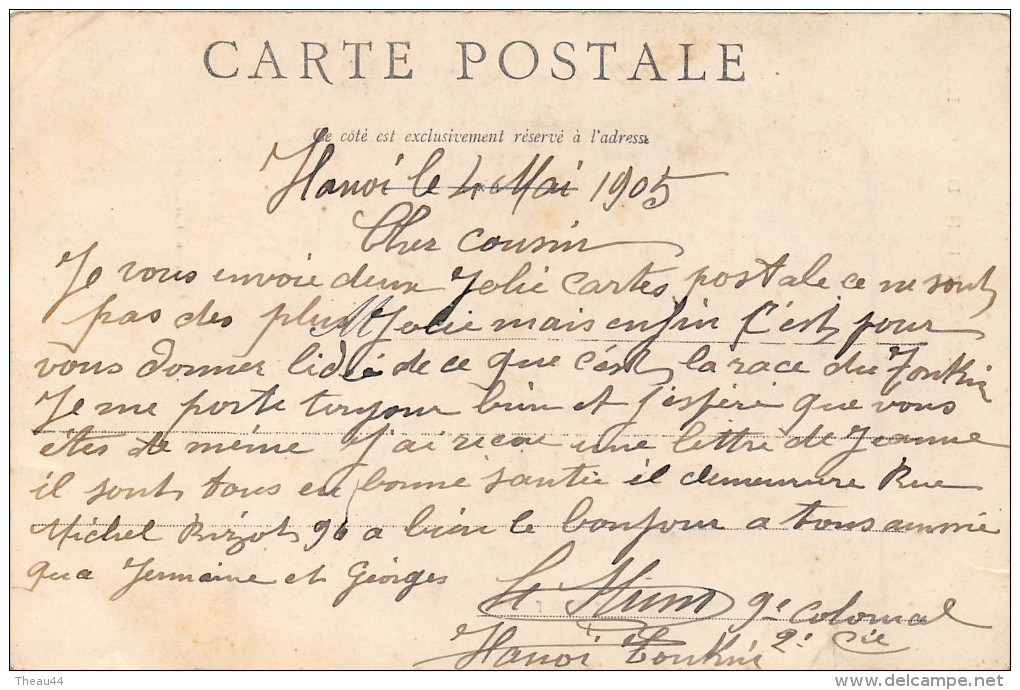 CARTE POSTALE
Ce côté est exclusivement réservé à l'adresse
Hanoi le 4 Mai 1905
Cher cousin
Je vous envoie deux Jolie cartes postale ce ne sont
pas des plus Jolie mais enfin C'est pour
vous donner lidé de ce que c'est la race du Tonkin
Je me porte toujour bien et J'espère que vous
êtes de même J'ai recu une lettre de Jeanne
il sont tous en bonne santie il demeurere Rue
Michel Bizot 96 a bien le bonjour a tous ainsie
qu a Jermaine et Georges
9e colonial
2e Cie
Hanoi Tonkin
Theau44
www.delcampe.net